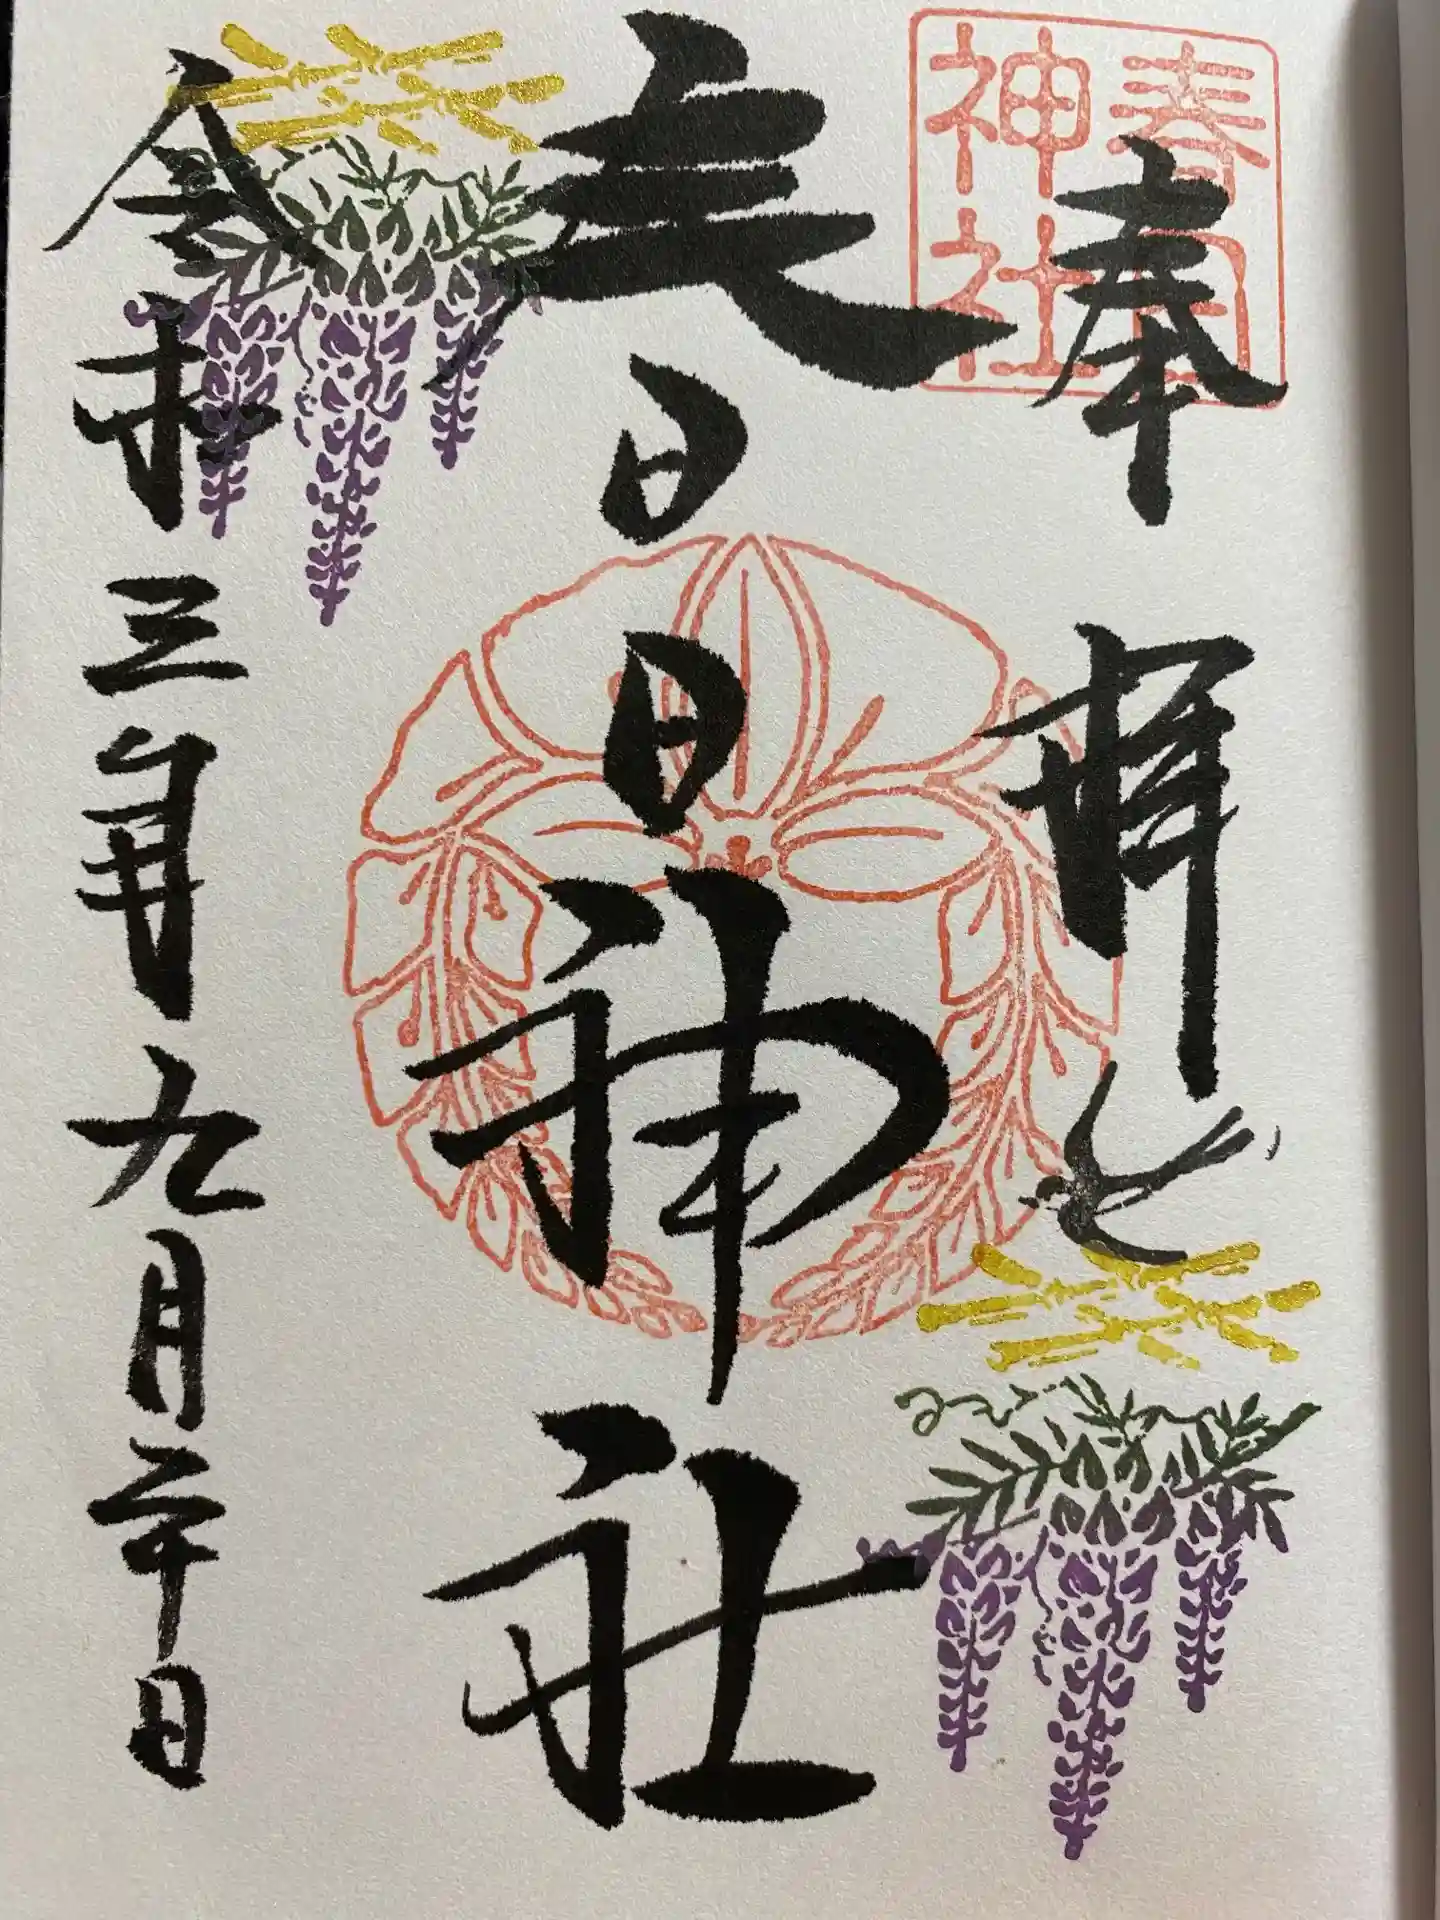 奉拝
春日
神社
春日神社
令和三年九月二十日